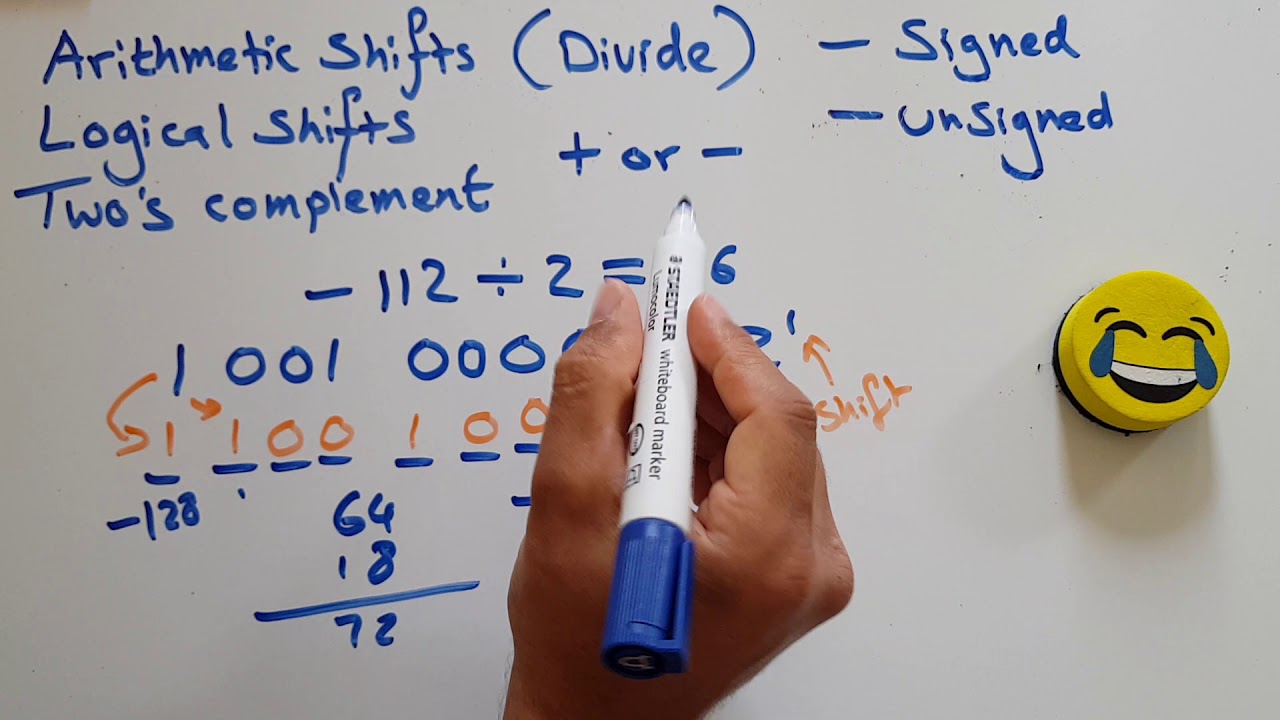 Arithmetic Shifts (Divide) - Signed
Logical Shifts - Unsigned
+ or -
Two's complement
-112 ÷ 2 = 6
1 001 000
shift
1 100 1 00
-128
64
18
72
STAEDTLER
Lumocolor whiteboard marker